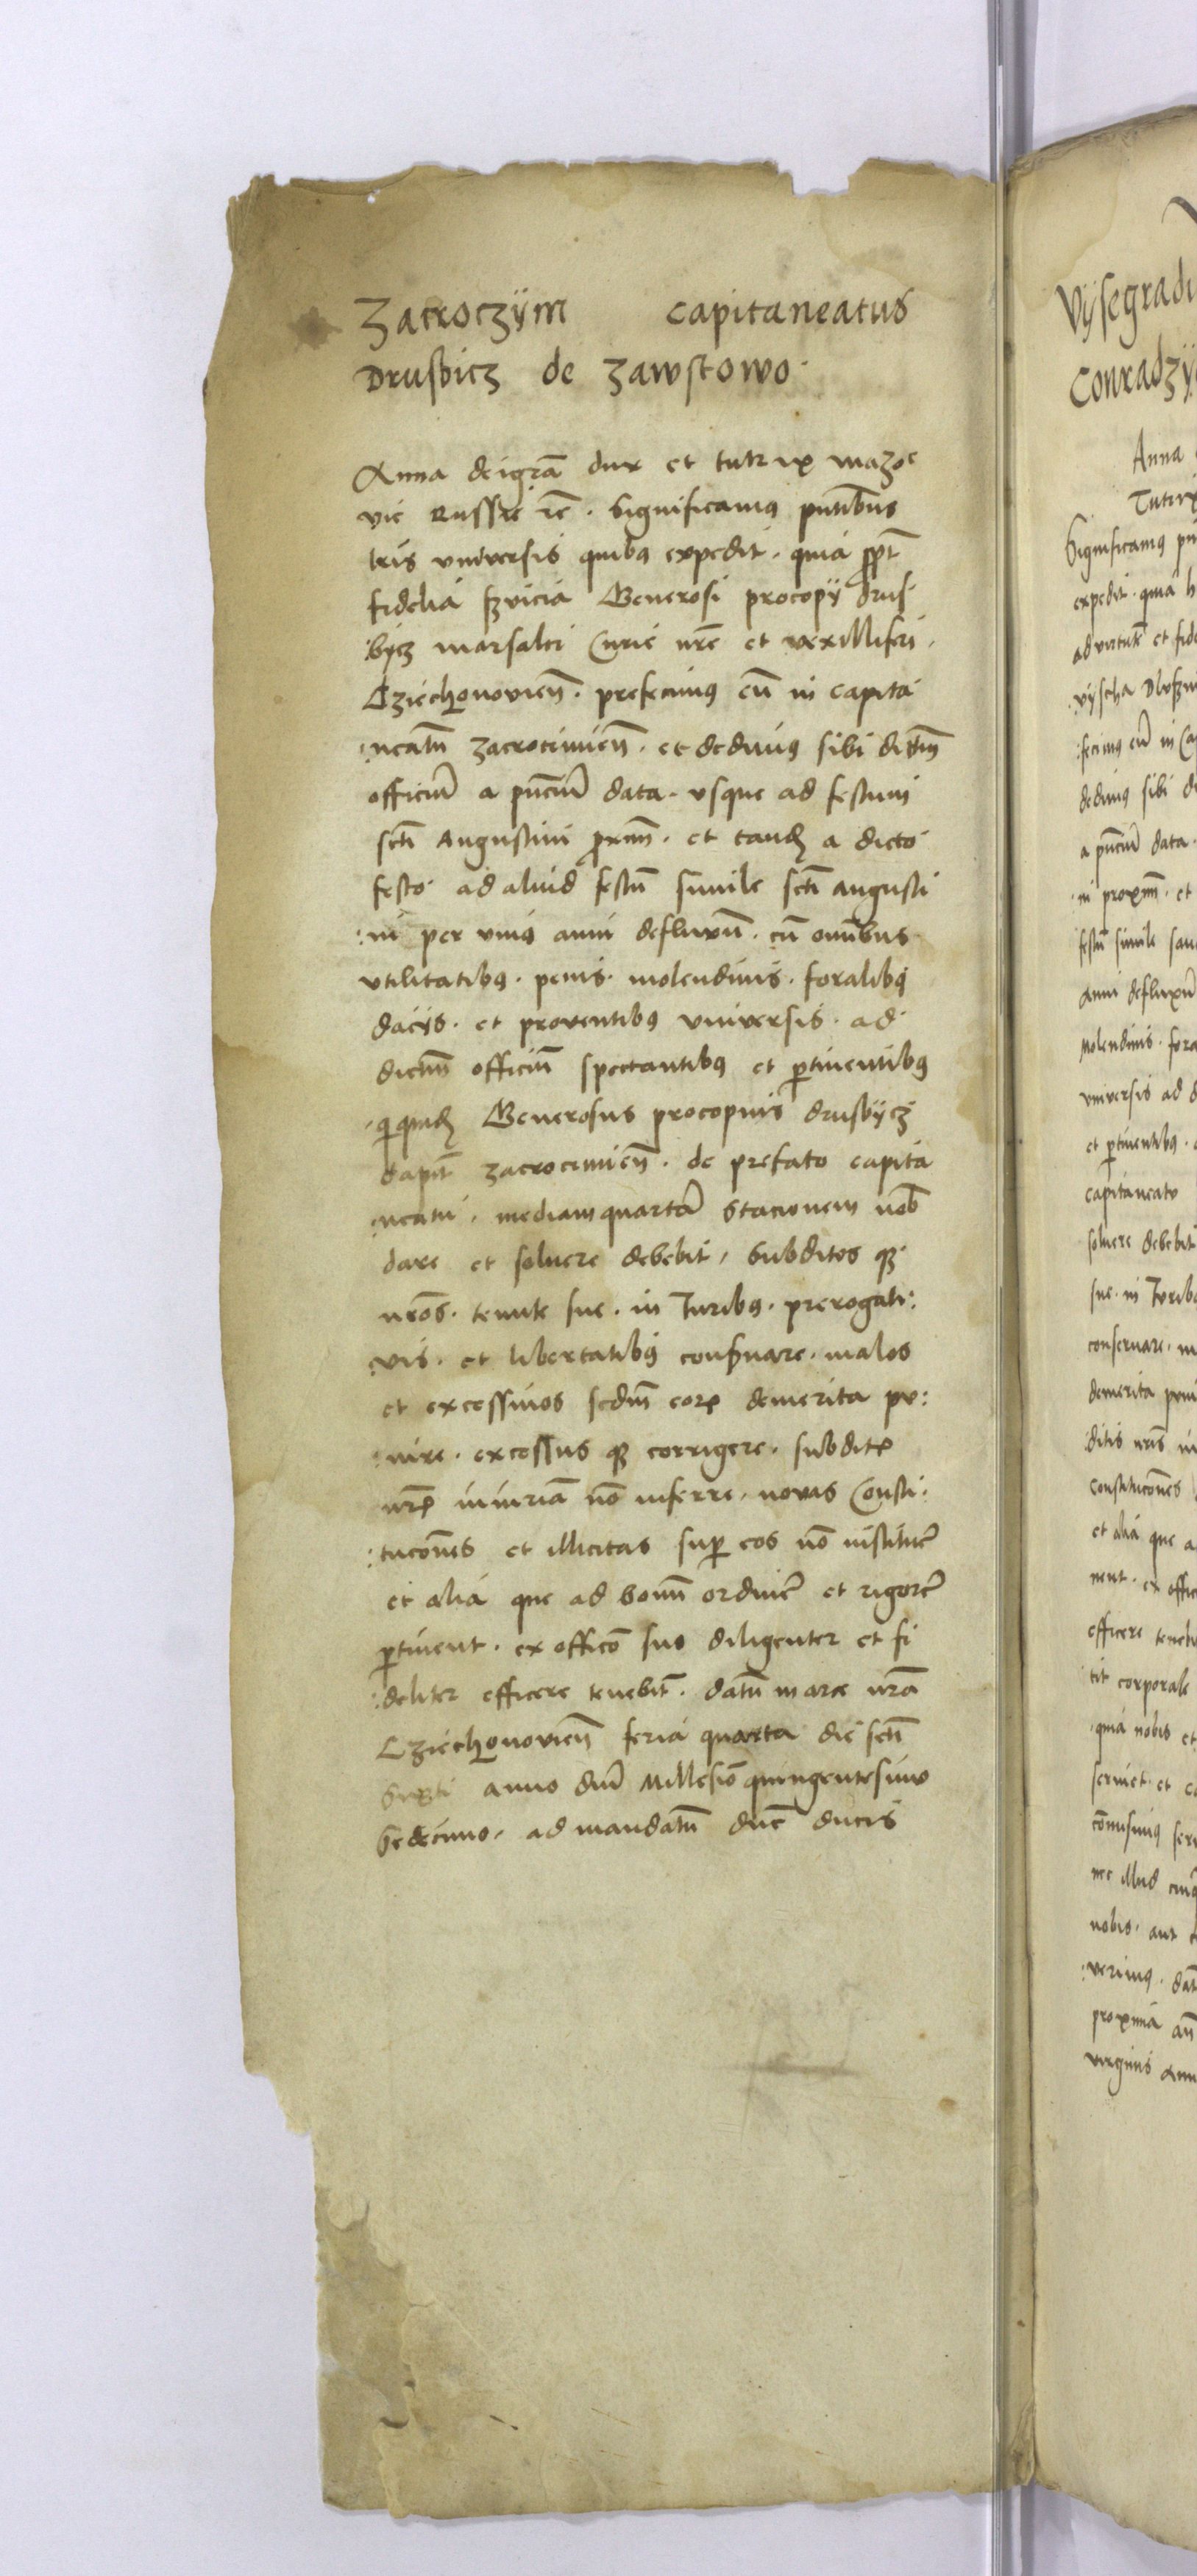 Zacroczÿm capitaneatus
Drusbicz de zawstowo.
Anna dei grã dux et tutrix mazo
vie Russie r̃c. Significamus pñtibus
lr̃is universis quibus expedit. quia
fidelia s̃vicia Generosi procopÿ drus
:bÿcz marsalci Curie nr̃e et vexilliferi.
Cziechonovieñ. prefecimus eũ in capita
:neatũ zacrocimieñ. et dedimus sibi dictũ
officiũ a pñciũ data. usque ad festum
scti Augustini proxm̃. et tandẽ a dicto
festo ad aliud festũ simile scti augusti
:ni per unius anni defluxũ. cũ omĩbus
utilitatibus. penis. molendinis. foralibus
dacÿs. et proventibus universis. ad
dictum officiũ spectantibus et ptinentibus
quiquidẽ Generosus procopius drusbÿcz
Capit̃ zacrocimieñ. de prefato capita
:neatu. mediam quartã Stacionem nob̃
dare et solvere debebit, Subditos qz
nr̃os. tenute sue. in Juribus. prerogati:
:vis. et libertatibus conservare. malos
et excessivos sedm̃ eorz demerita pu:
:nire. excessus qz corrigere. subditis
nr̃is iniuriã nõ inferre. novas Consti:
:tucões et illicitas sup eos nõ instituẽ
et alia que ad bonũ ordinẽ et rigorẽ
ptinent. ex officõ suo diligenter et fi
:deliter efficere tenebit̃. datũ in arce nr̃a
Cziechonovieñ feria quarta die scti
anno dñi Millesiõ quingentesimo
Sedecimo. ad mandatũ dñe ducis

Vÿsegradi
Conradzÿ
Anna
Tutrix
Significamus
expedit. quia
ad virtutẽ et fide
vÿscha
:fecimus eũ in Ca
dedimus sibi
a pñciũ data.
:ni proxm̃. et
festũ simile san
anni defluxũ
Molendinis. fora
universis ad
et ptinentibus.
capitaneatu
solvere debebit
sue. in Juribus
conservare.
demerita puni
:ditis nr̃is
Constitucões
et alia que
nent. ex offic
efficere tenebi
:tit corporale
quia nobis et
serviet. et
cõmisimus
nec illud
nobis. aut
:verimus.
proxima
virginis